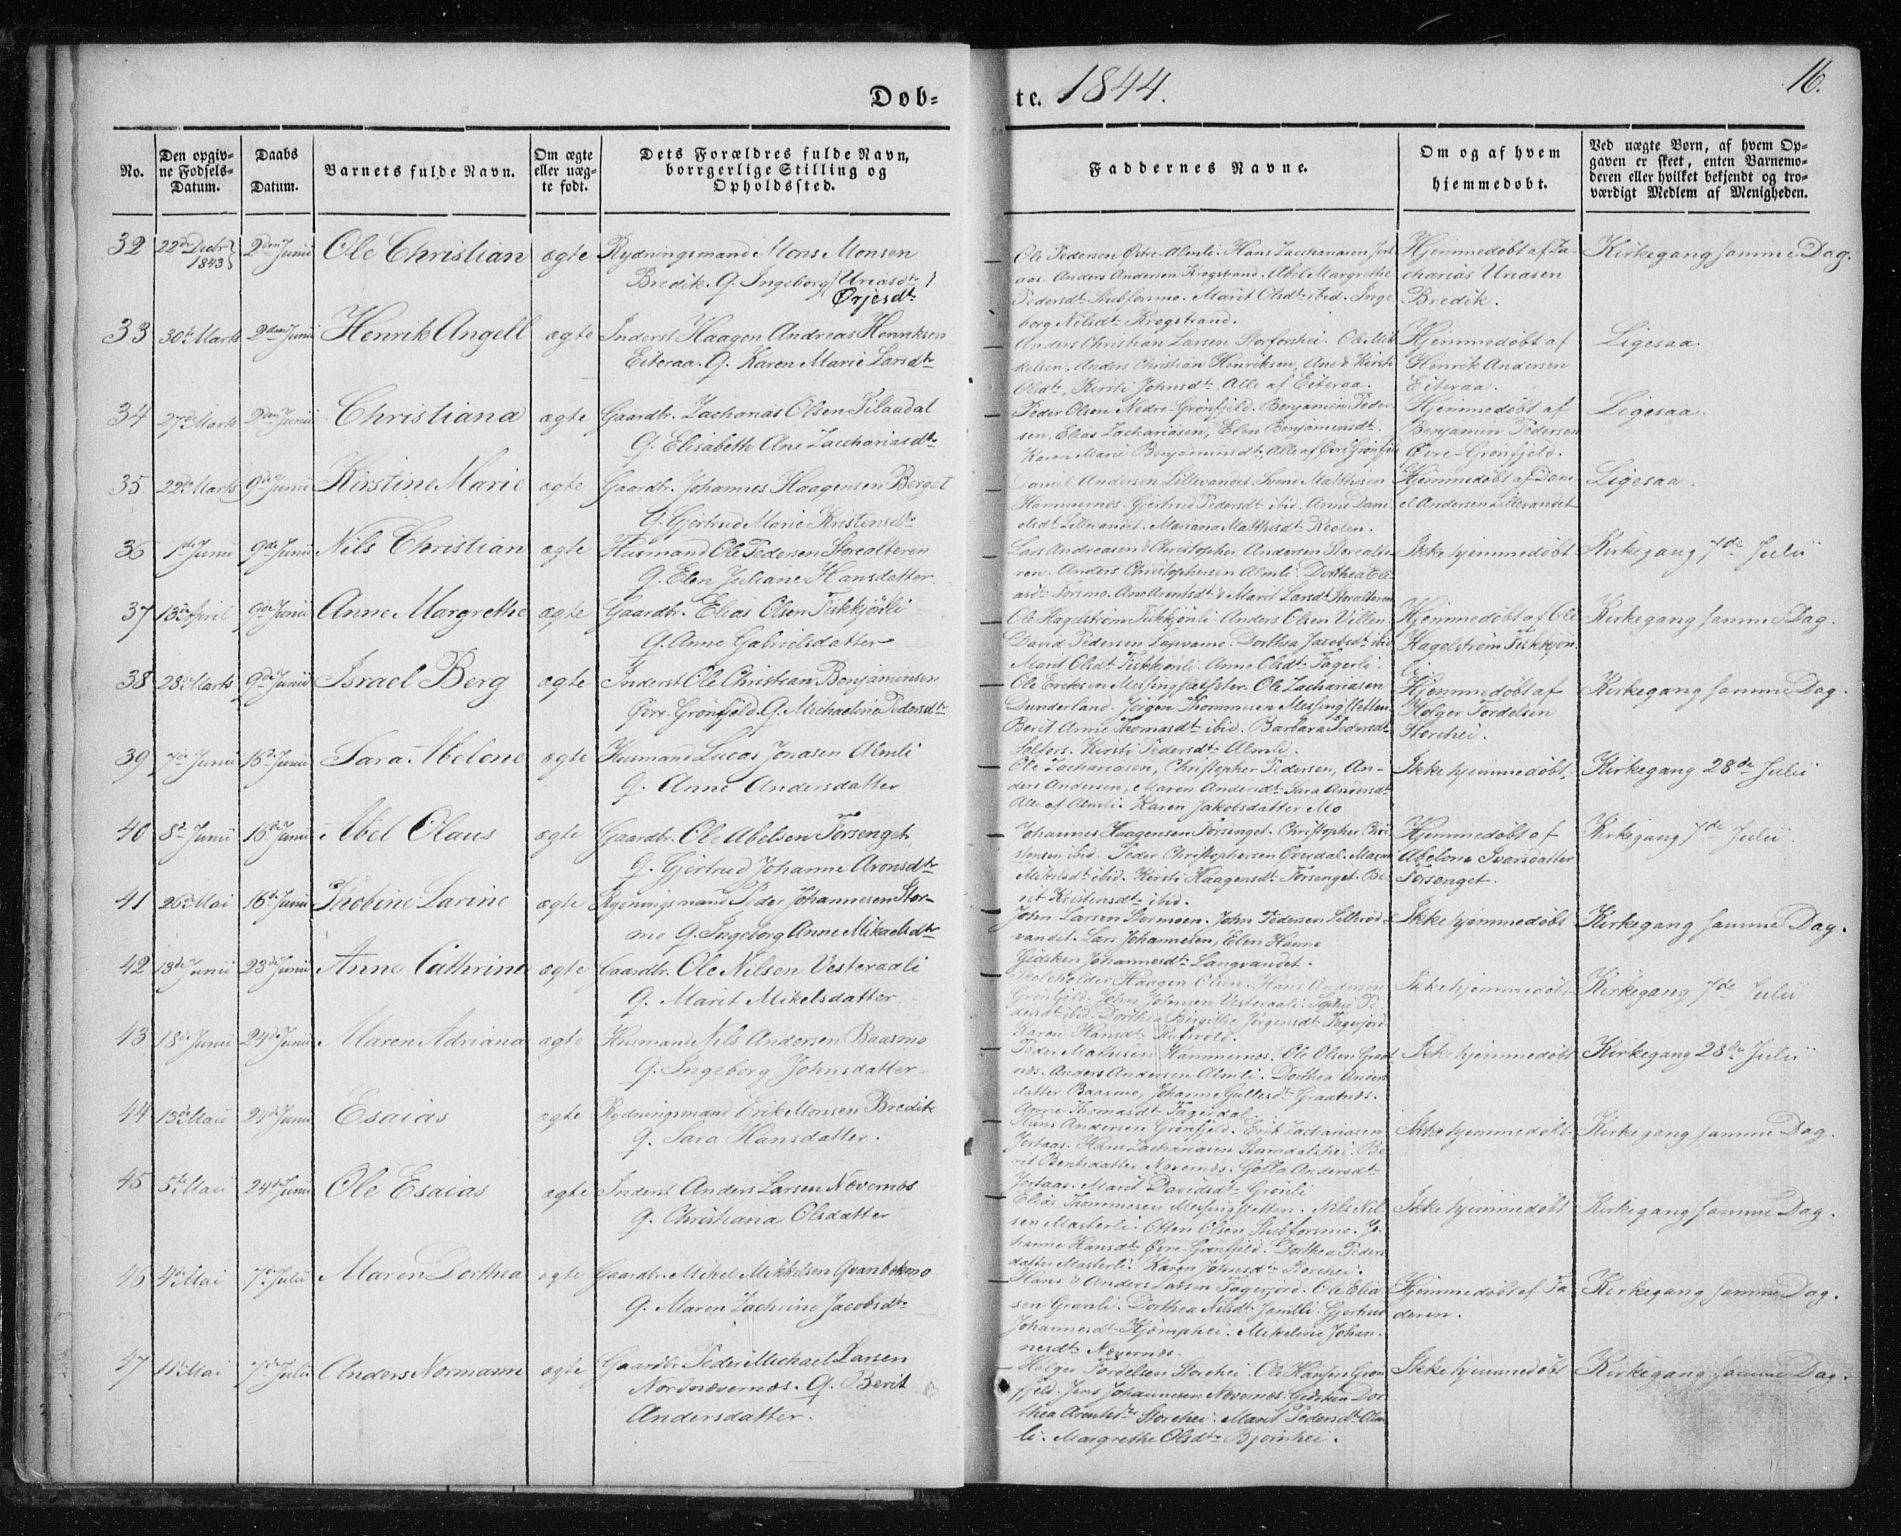 Døb-
te. 1844.
16.
No.
Den opgiv-
ne Fødsels-
Datum.
Daabs
Datum.
Barnets fulde Navn.
Om ægte
eller uæg-
te født.
Dets Forældres fulde Navn,
borrgerlige Stilling og
Opholdssted.
Faddernes Navne.
Om og af hvem
hjemmedøbt.
Ved uægte Børn, af hvem Op-
gaven er skeet, enten Barnemo-
deren eller hvilket bekjendt og tro-
værdigt Medlem af Menigheden.
32 22de Decbr 1843 2den Junii Ole Christian ægte Rydningsmand Mons Monsen
Bredik. G. Ingeborg (Uriasdt)
Ørjesdt
Ole Pedersen Østre Almli. Hans Zachariasen
Anders Andersen Krogstrand. Abel Margrethe
Pedersdt Stubforsmo. Marit Olsdt ibid. Inge
borg Nilsdt Krogstrand.
Hjemmedøbt af Za-
charias Uriasen
Bredik.
Kirkegang samme Dag.
33 30te Marts 2den Junii Henrik Angell ægte Inderst Haagen Andreas Henriksen
Eiteraa. G. Karen Marie Larsdt
Anders Christian Larsen Storforshei. Ole Mik
kelsen, Anders Christian Henriksen, Ane & Kirsti
Olsdt, Kirsti Johnsdt, Alle af Eiteraa.
Hjemmedøbt af
Henrik Andersen
Eiteraa.
Ligesaa.
34 27de Marts 2den Junii Christiana ægte Gaardbr. Zacharias Olsen Pilaadal
G. Elisabeth Ane Zacchariasdt
Peder Olsen Nedre-Grønfjeld. Benjamin Peder-
sen, Elias Zachariasen, Elen Benjaminsdt
Karen Marie Benjaminsdt, Alle af Øvre Grønfjeld
Hjemmedøbt af
Benjamin Pedersen
Øvre-Grønfjeld.
Ligesaa.
35 22de Marts 9de Junii Kirstine Marie ægte Gaardbr. Johannes Haagensen Berget
G. Gjertrud Marie Kristensdt
Daniel Andersen Lillevandet. Svend Matthisen
Hammernæs. Gjertrud Pedersdt ibid. Anne Dani
elsdt Lillevandet. Mariana Matthisdt
Hjemmedøbt af Dani
el Andersen Lillevandet
Ligesaa.
36 1de Junii 9de Junii Nils Christian ægte Husmand Ole Pedersen Storealteren
G. Elen Juliane Hansdatter
Lars Andreasen & Christopher Andersen Storealte-
ren. Anders Christophersen Almli. Dorthea Eli
asdt Forsmo. Ane Arentsdt & Marit Larsdt Storalteren
Ikke hjemmedøbt
Kirkegang 7de Julii
37 13de April 9de Junii Anne Margrethe ægte Gaardbr. Elias Olsen Fiskkjønli
G. Anne Gabrielsdatter
Ole Hagelstrøm Fiskkjønli. Anders Olsen Villen
David Pedersen. Dorthea Jacobsdt ibid
Marit Olsdt Fiskkjønli. Anne Olsdt Fagerli.
Hjemmedøbt af Ole
Hagelstrøm Fiskkjøn
li.
Kirkegang samme Dag.
38 28de Marts 9de Junii Israel Berg ægte Inderst Ole Christian Benjaminsen
Øvre-Grønfjeld. G. Michaelina Pedersdt
Ole Eriksen Messingsletten. Ole Zachariasen
Dunderland. Jørgen Thommesen Messingsletten.
Berit Anne Thomasdt ibid. Barbara Pedersdt
Solfors. Kirsti Pedersdt Almli.
Hjemmedøbt af
Holger Fordelsen
Storehei.
Kirkegang samme Dag.
39 7de Junii 16de Junii Sara Abelone ægte Husmand Lucas Jonasen Almli
G. Anne Andersdatter
Ole Zachariasen, Christopher Pedersen, An-
ders Andersen, Maren Andersdt Sara Andersdt
Alle af Almli. Karen Jakobsdatter Mo
Ikke hjemmedøbt.
Kirkegang 28de Julii
40 8de Junii 16de Junii Abel Olaus ægte Gaardbr. Ole Abelsen Forsenget
G. Gjertrud Johanne Aronsdt
Johannes Haagensen Forsenget. Christopher Chri
stensen ibid. Peder Christophersen Øverdal. Maren
Mikelsdt ibid. Kirsti Haagensdt Forsenget. Be-
rit Kristensdt ibid.
Hjemmedøbt af
Abelone Ivarsdatter
Forsenget.
Kirkegang 7de Julii
41 26de Mai 16de Junii Thobine Larine ægte Rydningsmand Peder Johannesen Stor-
mo G. Ingeborg Anne Mikaelsdt
John Larsen Stormoen. John Pedersen Lillerød-
vandet. Lars Johannesen, Elen Hanne
Gidsken Johannesdt Langvandet.
Ikke hjemmedøbt
Kirkegang samme Dag.
42 13de Junii 23de Junii Anne Cathrine ægte Gaardbr. Ole Nilsen Vesteraali
G. Marit Mikelsdatter
Skoleholder Haagen Olsen. Hans Andersen
Grønfjeld. John Johnsen Vesteraali. Sophie Pe-
dersdt ibid. Dorthea Birgitte Jørgensdt Fagerjord.
Karen Hansdt Rufsvold.
Ikke hjemmedøbt
Kirkegang 7de Julii
43 18de Junii 24de Junii Maren Adriana ægte Husmand Nils Andersen Baasmo
G. Ingeborg Johnsdatter
Peder Mathisen Hammernæs. Ole Olsen Graat
næs. Anders Andersen Almli. Dorthea Anders
datter Baasmo, Johanne Gullesdt Graatnæs.
Anne Thomasdt Fagerdal.
Ikke hjemmedøbt
Kirkegang 28de Julii
44 13de Maii 24de Junii Esaias ægte Rydningsmand Erik Monsen Bredik
G. Sara Hansdatter.
Hans Andersen Grønfjeld. Erik Zachariasen
Jortaas. Hans Zachariasen Stormdalshei. Be
rit Bentsdatter Nævernæs. Golla Andersdt
Jortaas. Marit Davidsdt Grønli
Ikke hjemmedøbt.
Kirkegang samme Dag.
45 5de Maii 24de Junii Ole Esaias ægte Inderst Anders Larsen Nævernæs
G. Christiana Olsdatter
Elias Thommesen Messingsletten. Nils Nil-
sen Masterli. Otten Olsen Stubforsmo. Jo
hanne Hansdt Øvre-Grønfjeld. Dorthea Peders
datter Masterli. Karen Johnsdt Storehei.
Ikke hjemmedøbt
Kirkegang samme Dag.
46 4de Mai 7de Julii Maren Dorthea ægte Gaardbr. Mikel Mikkelsen Qvanbekmo
G. Maren Zachrine Jacobsdt
Hans & Anders Larsen Fagerjord. Ole Elia
sen Granli. Dorthea Nilsdt Jamtli. Gjertrud
Johannesdt Kjømphei. Mikeline Johan-
nesdt Nævernæs.
Hjemmedøbt af Fa
deren.
Kirkegang samme Dag.
47 11te Mai 7de Julii Anders Normann ægte Gaardbr. Peder Michael Larsen
Nordnævernæs. G. Berit
Andersdatter.
Holger Fordelsen Storehei. Ole Hansen Grøn
fjeld. Jens Johannesen Nævernæs. Gidsken Dor
thea Arentsdt Storehei. Marit Pedersdt Alm
li. Margrethe Olsdt Bjørnhei.
Ikke hjemmedøbt
Kirkegang samme Dag.